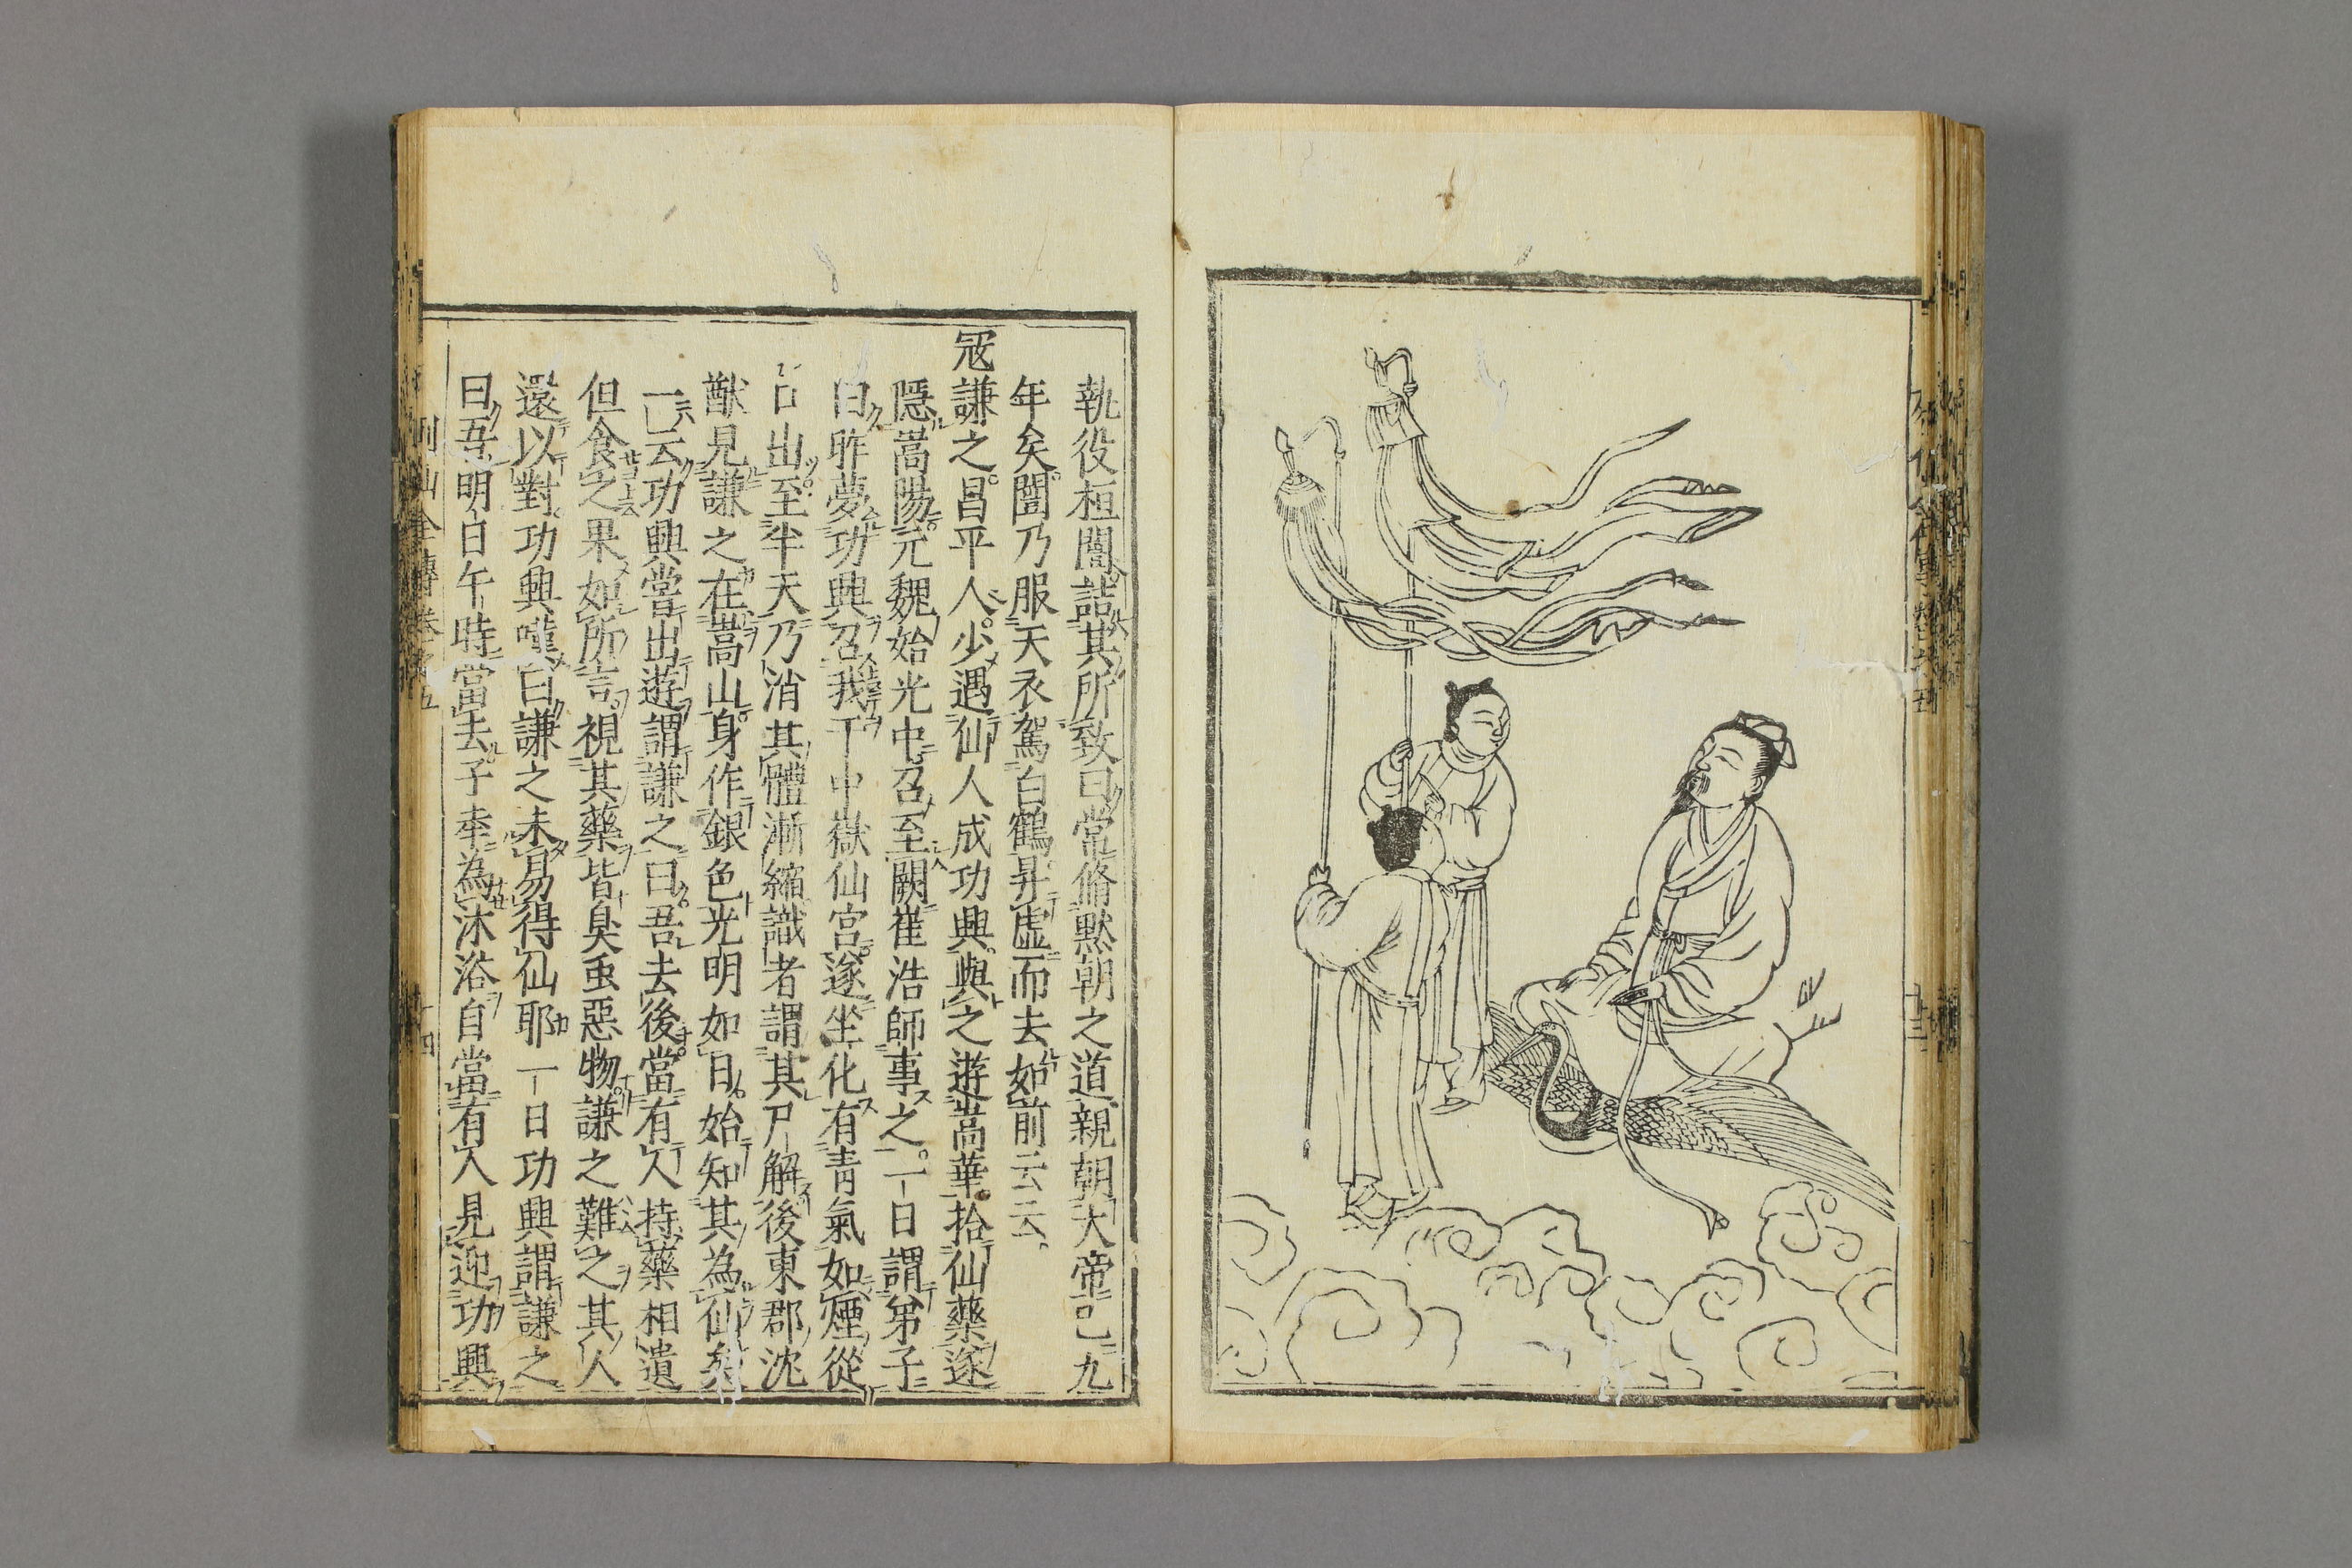 執役桓闓詰其所致曰常脩黙朝之道親朝大帝已九
年矣闓乃服天衣駕白鶴昇虚而去如前云云
冦謙之昌平人少遇仙人成功興與之遊嵩華拾仙藥遂
隠嵩陽元魏始光中召至闕崔浩師事之一日謂弟子
曰昨夢功興召我于中嶽仙宮遂坐化有青氣如煙從
口出至半天乃消其體漸縮識者謂其尸解後東郡沈
猷見謙之在嵩山身作銀色光明如日始知其為仙矣
一云功興嘗出遊謂謙之曰吾去後當有人持藥相遺
但食之果如所言視其藥皆臭虫惡物謙之難之其人
還以對功興嘆曰謙之未易得仙耶一日功興謂謙之
曰吾明日午時當去子幸為沐浴自當有人見迎功興
列仙全傳卷之五
十四